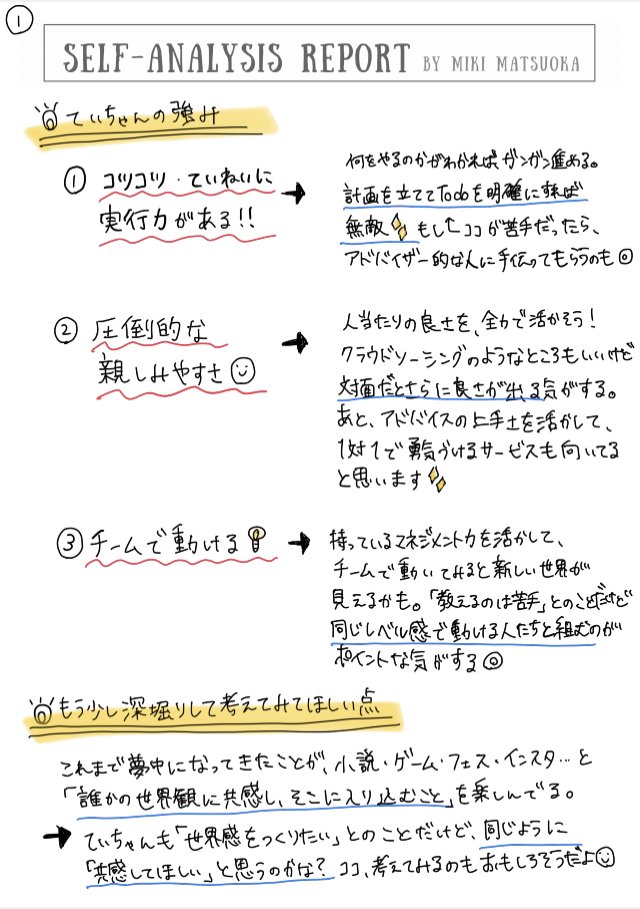 ①
SELF-ANALYSIS REPORT BY MIKI MATSUOKA
てぃちゃんの強み
① コツコツ・ていねいに
実行力がある!!
→ 何をやるのかがわかれば、ガンガン進める。
計画を立ててTodoを明確にすれば
無敵 もし↑ココが苦手だったら、
アドバイザー的な人に手伝ってもらうのも◎
② 圧倒的な
親しみやすさ
→ 人当たりの良さを、全力で活かそう!
クラウドソーシングのようなところもいいけど
対面だとさらに良さが出る気がする。
あと、アドバイスの上手さを活かして、
1対1で勇気づけるサービスも向いてる
と思います
③ チームで動ける
→ 持っているマネジメント力を活かして、
チームで動いてみると新しい世界が
見えるかも。「教えるのは苦手」とのことだけど
同じレベル感で動ける人たちと組むのが
ポイントな気がする◎
もう少し深堀りして考えてみてほしい点
これまで夢中になってきたことが、小説・ゲーム・フェス・インスタ…と
「誰かの世界観に共感し、そこに入り込むこと」を楽しんでる。
→ てぃちゃんも「世界感をつくりたい」とのことだけど、同じように
「共感してほしい」と思うのかな? ココ、考えてみるのもおもしろそうだよ